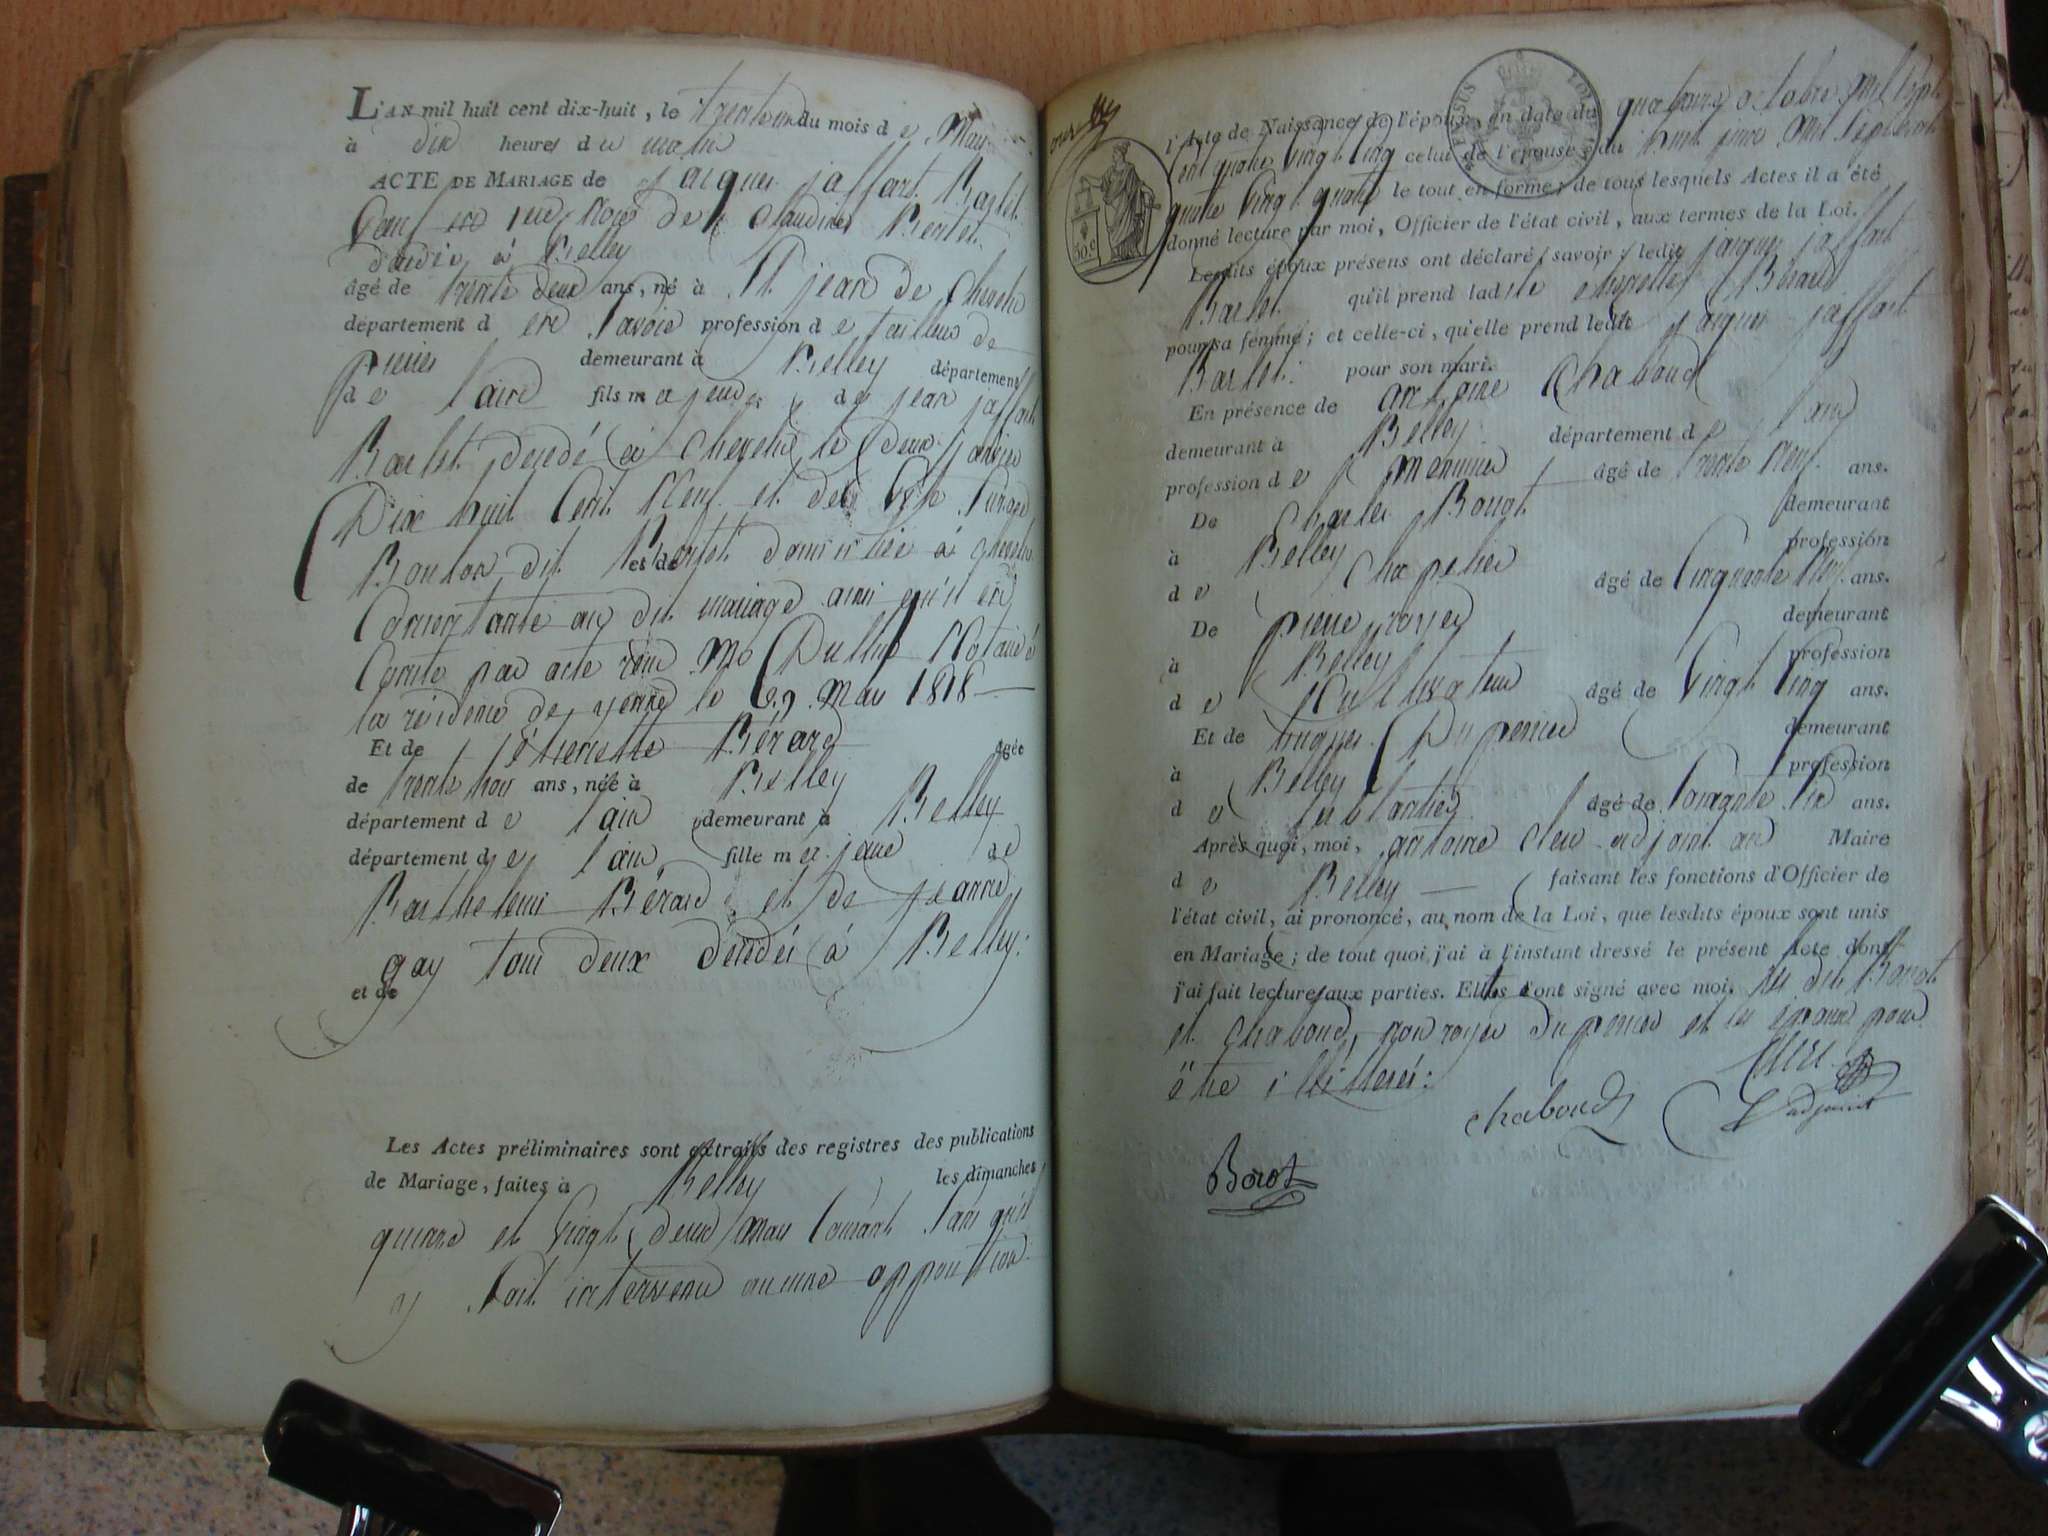 L'AN mil huit cent dix-huit, le trente un du mois de Mai
à dix heures du matin
ACTE DE MARIAGE de jacques jaffart Bartet
Veuf en noce de Claudine Bertet
décédé à Belley
âgé de trente deux ans, né à St jean de Chevelu
département d en Savoie profession de tailleur de
pierres demeurant à Belley département
de lain fils majeur de jean jaffart
Bartet décédé à Chevelu le deux janvier
Dix huit Cent Neuf et de
Bouton dit et de domiciliée à chevelu
Consentante au dit mariage ainsi qu'il en
Conste par acte recu Me Dullin Notaire à
la résidence de yenne le 29 Mai 1818
Et de étiennette Bérard âgée
de trente trois ans, née à Belley
département de lain demeurant à Belley
département de lain fille majeure de
Barthelemi Bérard et de jeanne
gay tous deux décédés à Belley.
et de
Les Actes préliminaires sont extraits des registres des publications
de Mariage, faites à Belley les dimanches
quinze et vingt deux mai Courant Sans qu'il
y Soit intervenu aucune opposition
l'Acte de Naissance de l'époux, en date du quatorze octobre mil Sept
Cent quatre vingt Cinq celui de l'épouse du huit juin Mil Sept Cent
quatre Vingt quatre le tout en forme; de tous lesquels Actes il a été
donné lecture par moi, Officier de l'état civil, aux termes de la Loi.
50.c
Lesdits époux présens ont déclaré, savoir: ledit jacques jaffart
Bartet qu'il prend ladite etiennette Bérard
pour sa femme; et celle-ci, qu'elle prend ledit jacques jaffart
Bartet pour son mari.
En présence de antoine Chaboud
demeurant à Belley département de lain
profession de Menuisier âgé de trente Neuf ans.
De Charles Borot demeurant
à Belley profession
de Chapelier âgé de Cinquante Neuf ans.
De pierre royer demeurant
à Belley profession
de Cultivateur âgé de Vingt Cinq ans.
Et de hugues Duperrier demeurant
à Belley profession
de ferblantier âgé de Soixante Six ans.
Après quoi, moi, antoine Clerc adjoint au Maire
de Belley faisant les fonctions d'Officier de
l'état civil, ai prononcé, au nom de la Loi, que lesdits époux sont unis
en Mariage; de tout quoi, j'ai à l'instant dressé le présent Acte dont
j'ai fait lecture aux parties. Elles l'ont signé avec moi. les dits Borot
et Chaboud, non royer Duperrier et les époux pour
être illitterés:
Clerc
chaboud adjoint
Borot